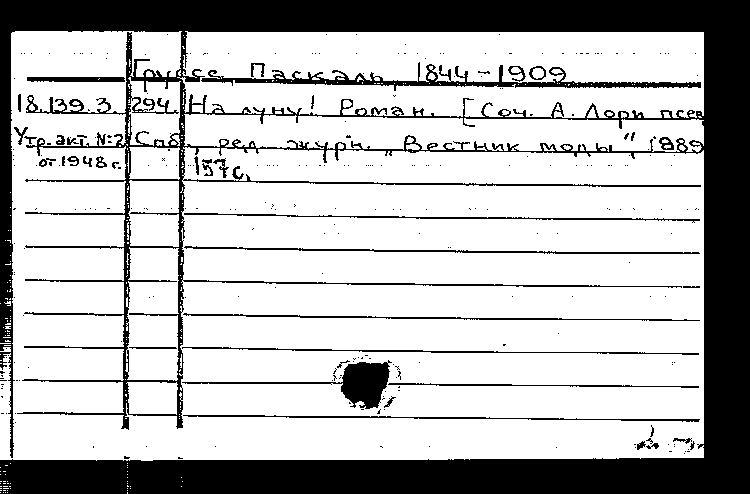 Груссе, Паскаль, 1844-1909
18.139.3.294. На луну! Роман. [Соч. А. Лори псев
Утр. акт. №2 Спб., ред. журн. „Вестник моды", 1889
от 1948 г. 157 с.